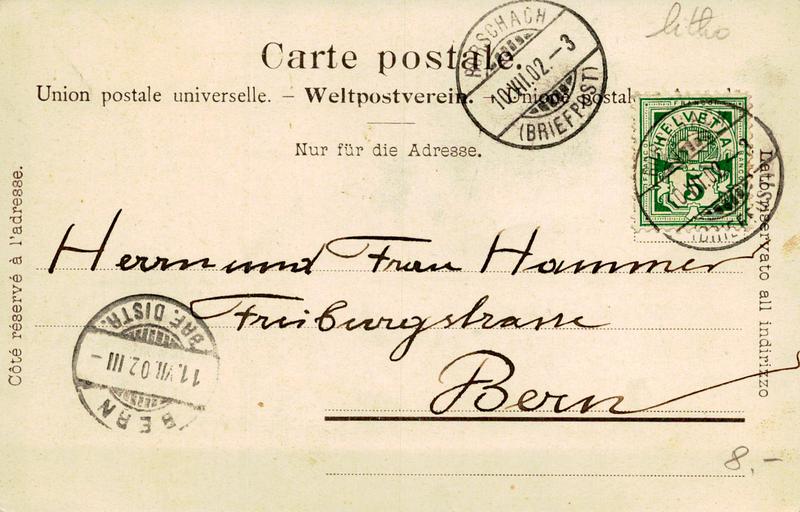 litho
Carte postale.
RORSCHACH
10.VII.02.-3
(BRIEFPOST)
Union postale universelle. – Weltpostverein. – Unione postal
Nur für die Adresse.
HELVETIA
FRANCO
5
Côté réservé à l'adresse.
Lato riservato all indirizzo
Herrn und Frau Hammer
Freiburgstrasse
Bern
BRF. DISTR.
11.VII.02.III-
BERN
8.-